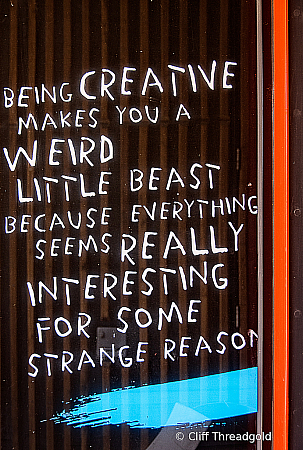 BEING CREATIVE
MAKES YOU A
WEIRD
LITTLE BEAST
BECAUSE EVERYTHING
SEEMS REALLY
INTERESTING
FOR SOME
STRANGE REASON
© Cliff Threadgold